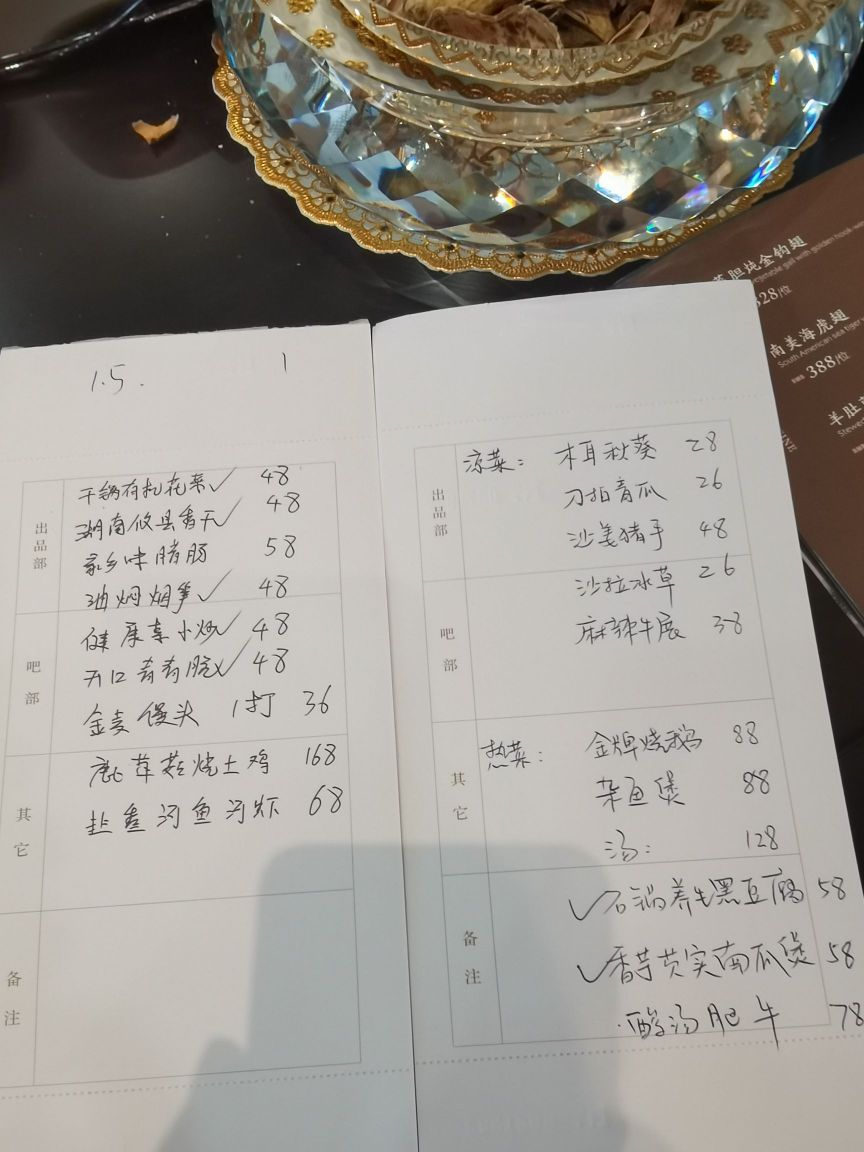 1.5. 1
出品部
干锅有机花菜✓ 48
湖南攸县香干✓ 48
家乡味腊肠 58
油焖烟笋✓ 48
吧部
健康素小炒✓ 48
开口青青脆✓ 48
金麦馒头 1打 36
其它
鹿茸菇烧土鸡 168
韭香河鱼河虾 68
备注
出品部
凉菜: 木耳秋葵 28
刀拍青瓜 26
沙姜猪手 48
吧部
沙拉冰草 26
麻辣牛展 38
其它
热菜: 金牌烧鹅 88
杂鱼煲 88
汤: 128
备注
✓石锅养生黑豆腐 58
✓香芋芡实南瓜煲 58
·酸汤肥牛 78
胆炖金钩翅
328/位
南美海虎翅
South American sea tiger
388/位
羊肚
Stewed